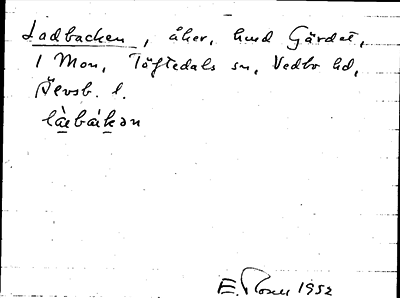 Ladbacken, åker, hmd Gärdet,
1 Mon, Töftedals sn, Vedbo hd,
Älvsb. l.
làebákən
E. Rosell 1952